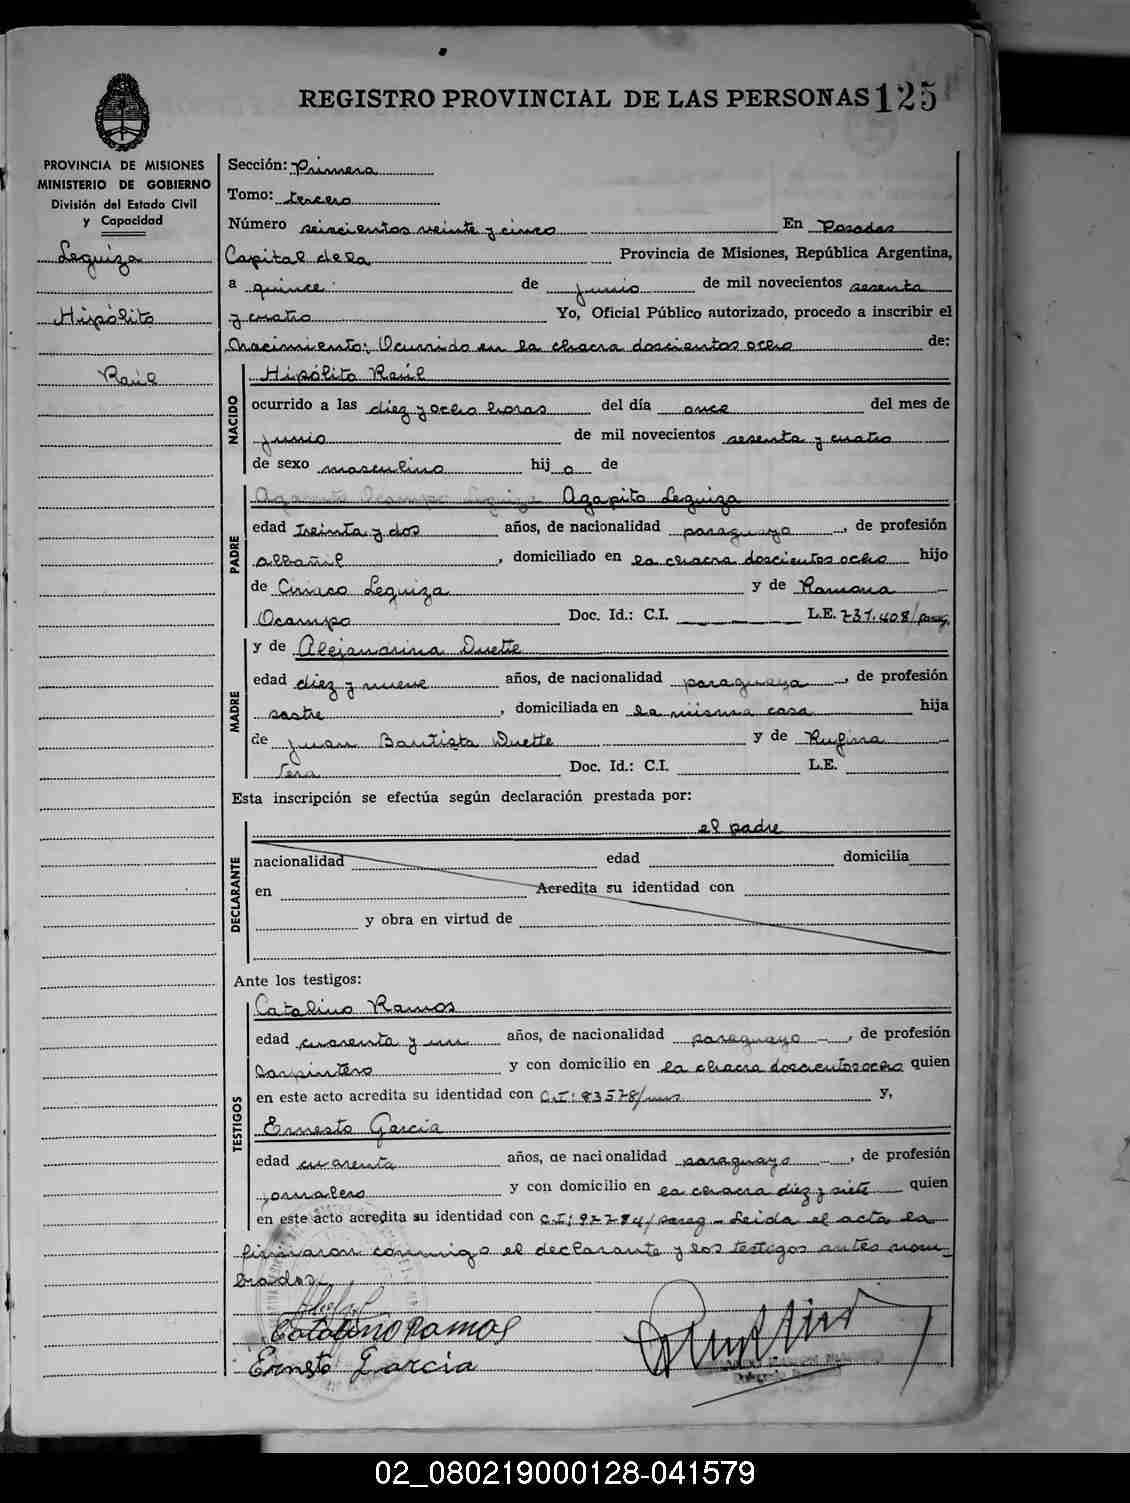 REGISTRO PROVINCIAL DE LAS PERSONAS 125
PROVINCIA DE MISIONES
MINISTERIO DE GOBIERNO
División del Estado Civil
y Capacidad
Leguiza
Hipólito
Raúl
Sección: Primera
Tomo: tercero
Número seiscientos veinte y cinco En Posadas
Capital de la Provincia de Misiones, República Argentina,
a quince de junio de mil novecientos sesenta
y cuatro Yo, Oficial Público autorizado, procedo a inscribir el
Nacimiento: Ocurrido en la chacra doscientos ocho de:
NACIDO
Hipólito Raúl
ocurrido a las diez y ocho horas del día once del mes de
junio de mil novecientos sesenta y cuatro
de sexo masculino hij o de
PADRE
Ocampo Leguiza Agapito Leguiza
edad treinta y dos años, de nacionalidad paraguayo, de profesión
albañil, domiciliado en la chacra doscientos ocho hijo
de Ciriaco Leguiza y de Ramona
Ocampo Doc. Id.: C.I. L.E. 731.408/parag.
MADRE
y de Alejandrina Duette
edad diez y nueve años, de nacionalidad paraguaya, de profesión
sastre, domiciliada en la misma casa hija
de Juan Bautista Duette y de Rufina
Vera Doc. Id.: C.I. L.E.
Esta inscripción se efectúa según declaración prestada por:
DECLARANTE
el padre
nacionalidad edad domicilia
en Acredita su identidad con
y obra en virtud de
Ante los testigos:
TESTIGOS
Catalino Ramos
edad cuarenta y un años, de nacionalidad paraguayo, de profesión
carpintero y con domicilio en la chacra doscientos ocho quien
en este acto acredita su identidad con C.I: 83578/mns y,
Ernesto Garcia
edad cuarenta años, de nacionalidad paraguayo, de profesión
jornalero y con domicilio en la chacra diez y siete quien
en este acto acredita su identidad con C.I: 92784/parag - Leida el acta la
firmaron conmigo el declarante y los testigos antes nom-
brados.
Catalino Ramos
Ernesto Garcia
02_080219000128-041579